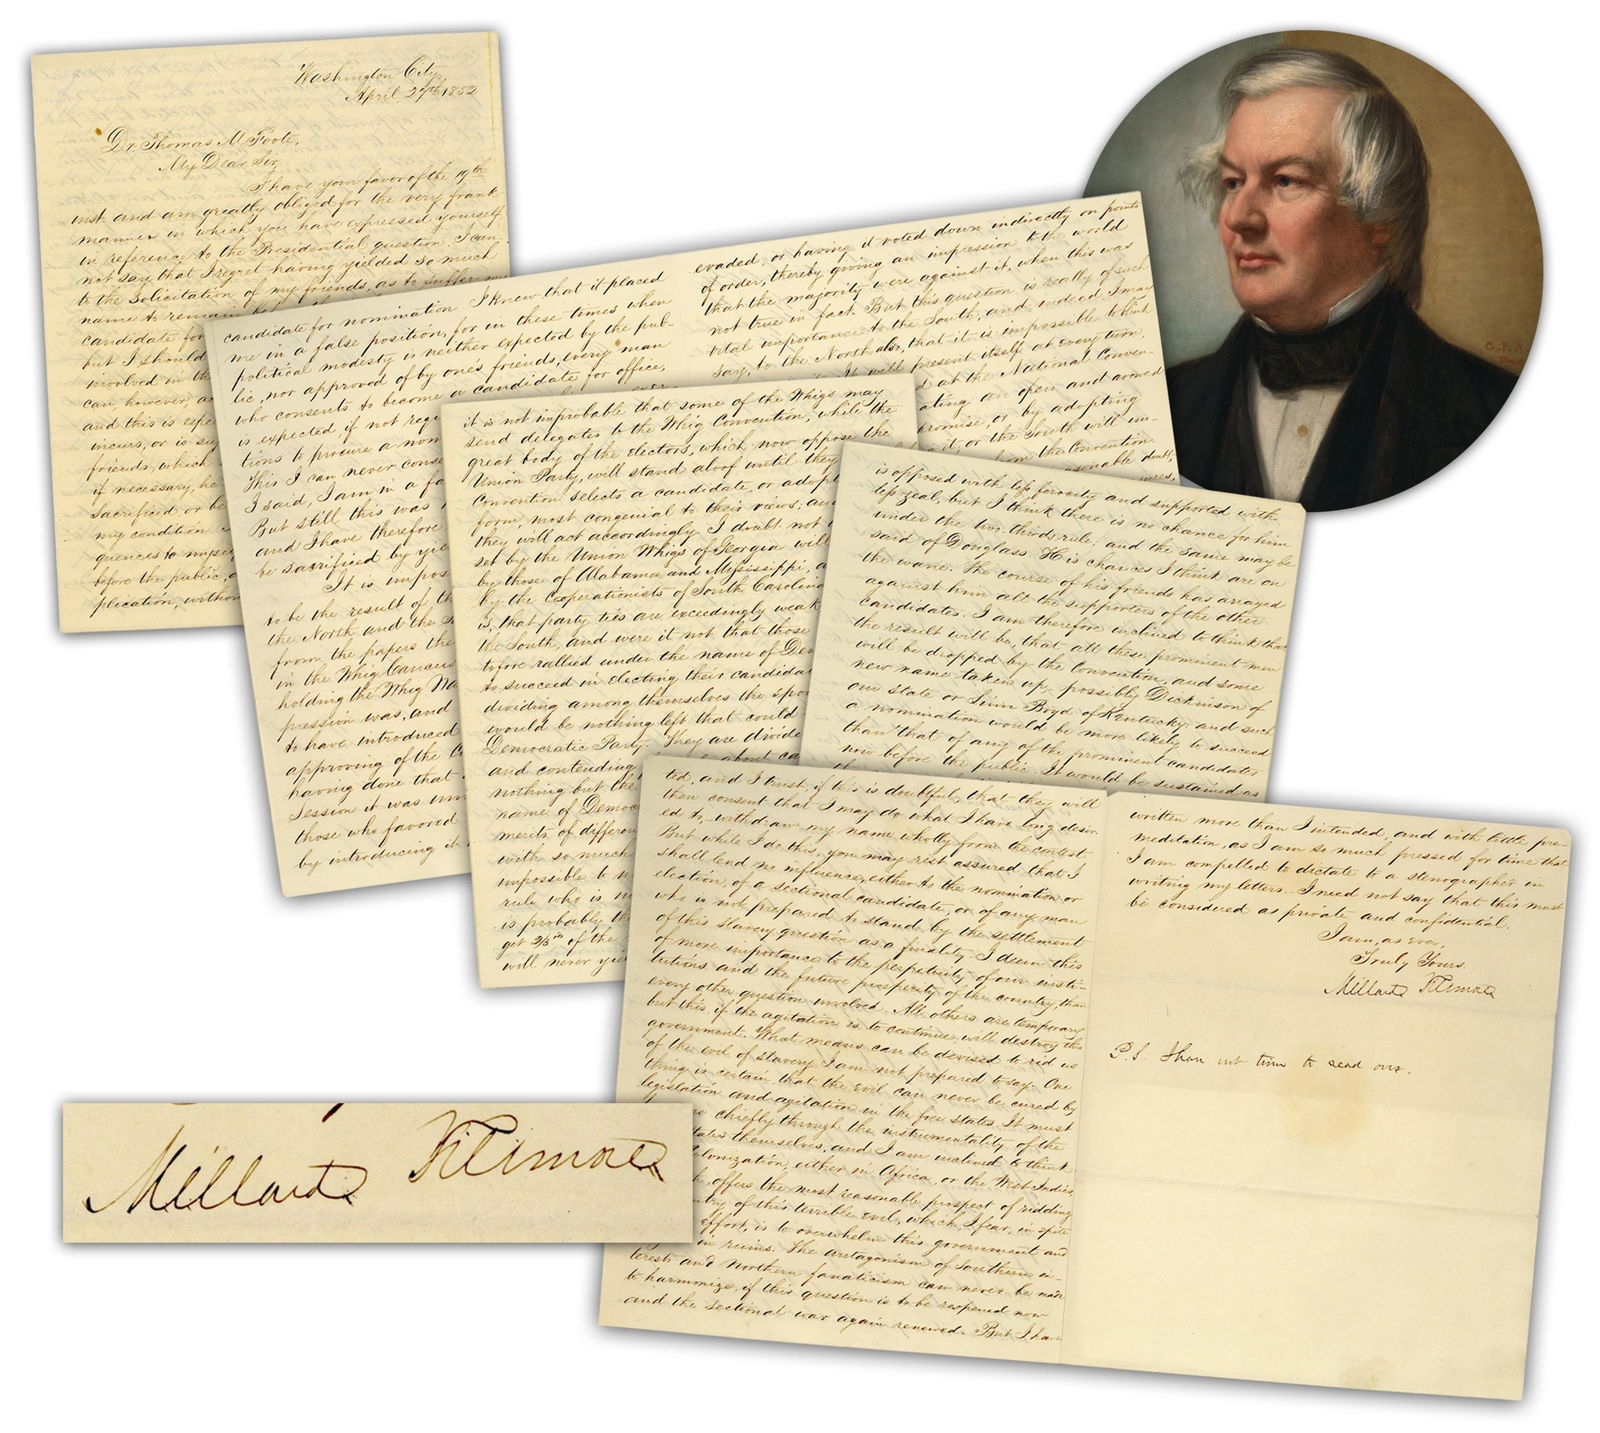 Washington City,
April, 29th 1852
Dr. Thomas M Foote,
My Dear Sir,
I have your favor of the 19th
inst and am greatly obliged for the very frank
manner in which you have expressed yourself
in reference to the Presidential question. I can
not say that I regret having yielded so much
to the solicitation of my friends, as to suffer my
name to remain
candidate for
but I should
involved in th
can, however, a
and this is espe
incurs, or is su
friends, which
if necessary, be
sacrificed or be
my condition
quences to myse
before the public,
plication, withou
candidate for nomination I knew that it placed
me in a false position, for in these times when
political modesty is neither expected by the pub-
lic, nor approved of by one's friends, every man
who consents to become a candidate for office,
is expected if not requ
tions to procure a nom
This I can never conse
I said, I am in a fa
But still this was
and I have therefore
be sacrificed by yie
It is impos
to be the result of th
the North and the S
from the papers the
in the Whig Caucus
holding the Whig Na
pression was, and
to have introduced
approving of the C
having done that
Session it was un
those who favored
by introducing it
evaded, or having it voted down indirectly on points
of order, thereby giving an impression to the world
that the majority were against it, when this was
not true in fact. But this question is really of such
vital importance to the South, and indeed I may
say, to the North also, that it is impossible to blink
it will present itself at every turn,
at the National Conven-
ating an open and avowed
promise, or by adopting
it; or the South will un-
from the Convention.
asonable doubt,
it is not improbable that some of the Whigs may
send delegates to the Whig Convention, while the
great body of the electors, which now oppose the
Union Party, will stand aloof until they
Convention selects a candidate, or adopt
form, most congenial to their views; and
they will act accordingly. I doubt not
set by the Union Whigs of Georgia will
by those of Alabama and Mississippi, a
by the Cooperationists of South Carolina
is, that party ties are exceedingly weak
the South, and were it not that those
tofore rallied under the name of Dem
to succeed in electing their candida
dividing among themselves the spo
would be nothing left that could
Democratic Party. They are divide
and contending about ca
nothing but the
name of Democ
merits of differen
with so much
impossible to n
rule who is n
is probably th
get 2/3ds of the
will never yie
is opposed with less ferocity and supported with
less zeal, but I think there is no chance for him
under the two thirds rule; and the same may be
said of Douglass. His chances I think are on
the wane. The course of his friends has arrayed
against him all the supporters of the other
candidates. I am therefore inclined to think that
the result will be, that all these prominent men
will be dropped by the Convention, and some
new name taken up, possibly Dickinson of
our state or Linn Boyd of Kentucky: and such
a nomination would be more likely to succeed
than that of any of the prominent candidates
now before the public. It would be sustained as
ted, and I trust, if this is doubtful, that they will
then consent that I may do what I have long desir-
ed to, withdraw my name wholly from the contest.
But while I do this, you may rest assured that I
shall lend no influence, either to the nomination or
election, of a sectional candidate, or of any man
who is not prepared to stand by the settlement
of this slavery question as a finality. I deem this
of more importance to the perpetuity of our insti-
tutions and the future prosperity of the country, than
every other question involved. All others are temporary
but this, if the agitation is to continue, will destroy this
government. What means can be devised to rid us
of the evil of slavery I am not prepared to say. One
thing is certain, that the evil can never be cured by
legislation and agitation in the free states. It must
chiefly through the instrumentality of the
tates themselves, and I am inclined to think
olonization, either in Africa, or the West Indies,
offers the most reasonable prospect of ridding
try of this terrible evil, which, I fear, in spite
effort, is to overwhelm this government and
in ruins. The antagonism of Southern in-
terests and Northern fanaticism can never be made
to harmonize, if this question is to be reopened now
and the sectional war again renewed. But I have
written more than I intended, and with little pre-
meditation, as I am so much pressed for time that
I am compelled to dictate to a stenographer in
writing my letters. I need not say that this must
be considered as private and confidential.
I am, as ever,
Truly Yours.
Millard Fillmore
P.S. I have not time to read over.
Millard Fillmore